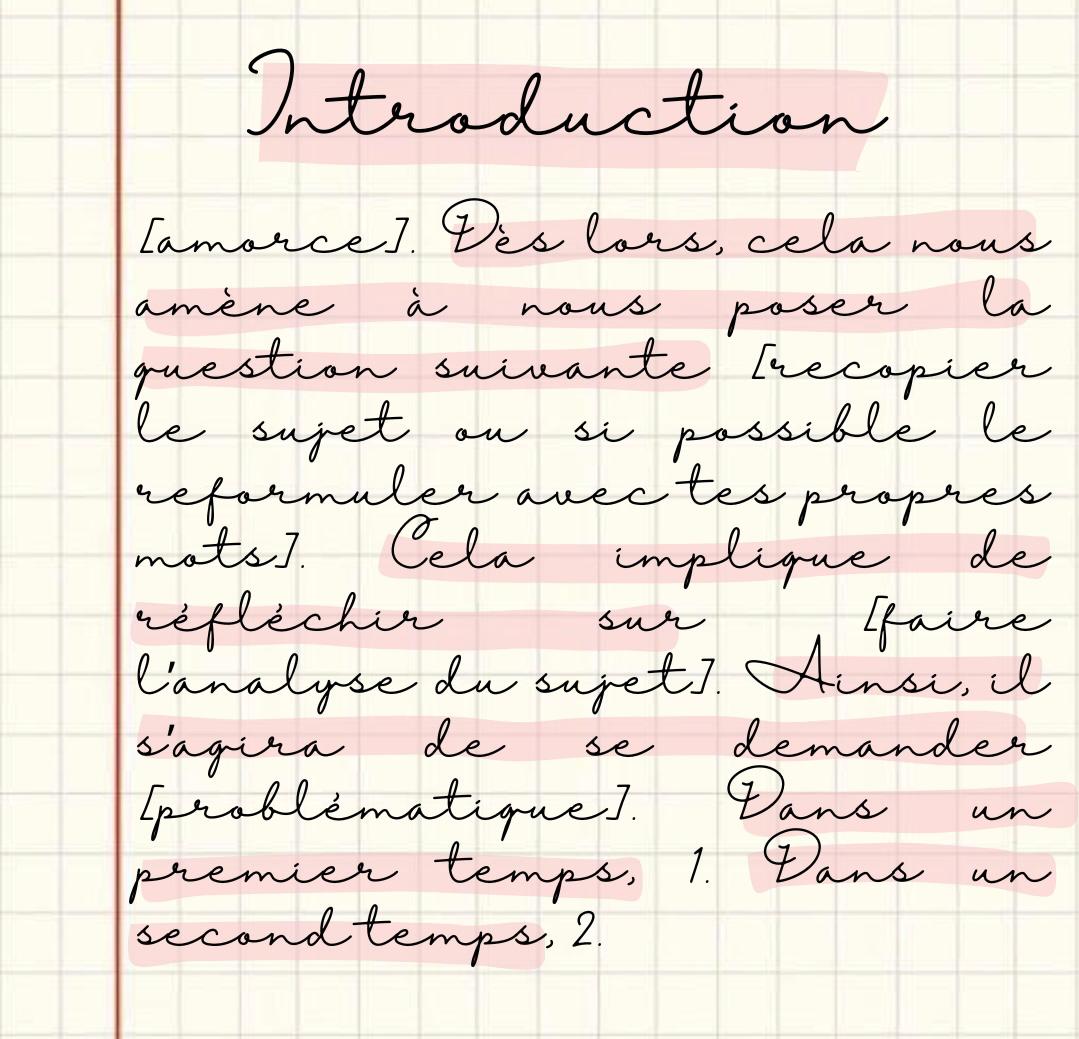 Introduction
[amorce]. Dès lors, cela nous
amène à nous poser la
question suivante [recopier
le sujet ou si possible le
reformuler avec tes propres
mots]. Cela implique de
réfléchir sur [faire
l'analyse du sujet]. Ainsi, il
s'agira de se demander
[problématique]. Dans un
premier temps, 1. Dans un
second temps, 2.